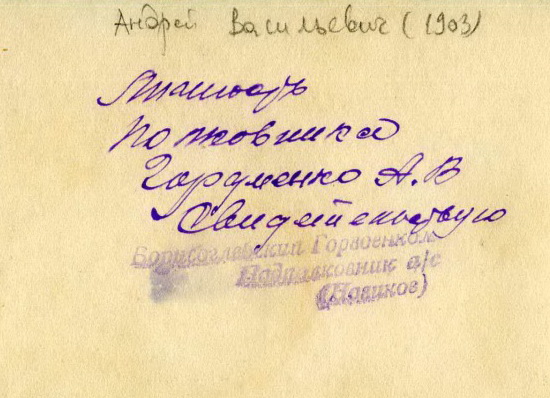 Андрей Васильевич (1903)
Личность
полковника
Гордиенко А.В
Свидетельствую
Борисоглебский Горвоенком
Подполковник а/с
(Новиков)